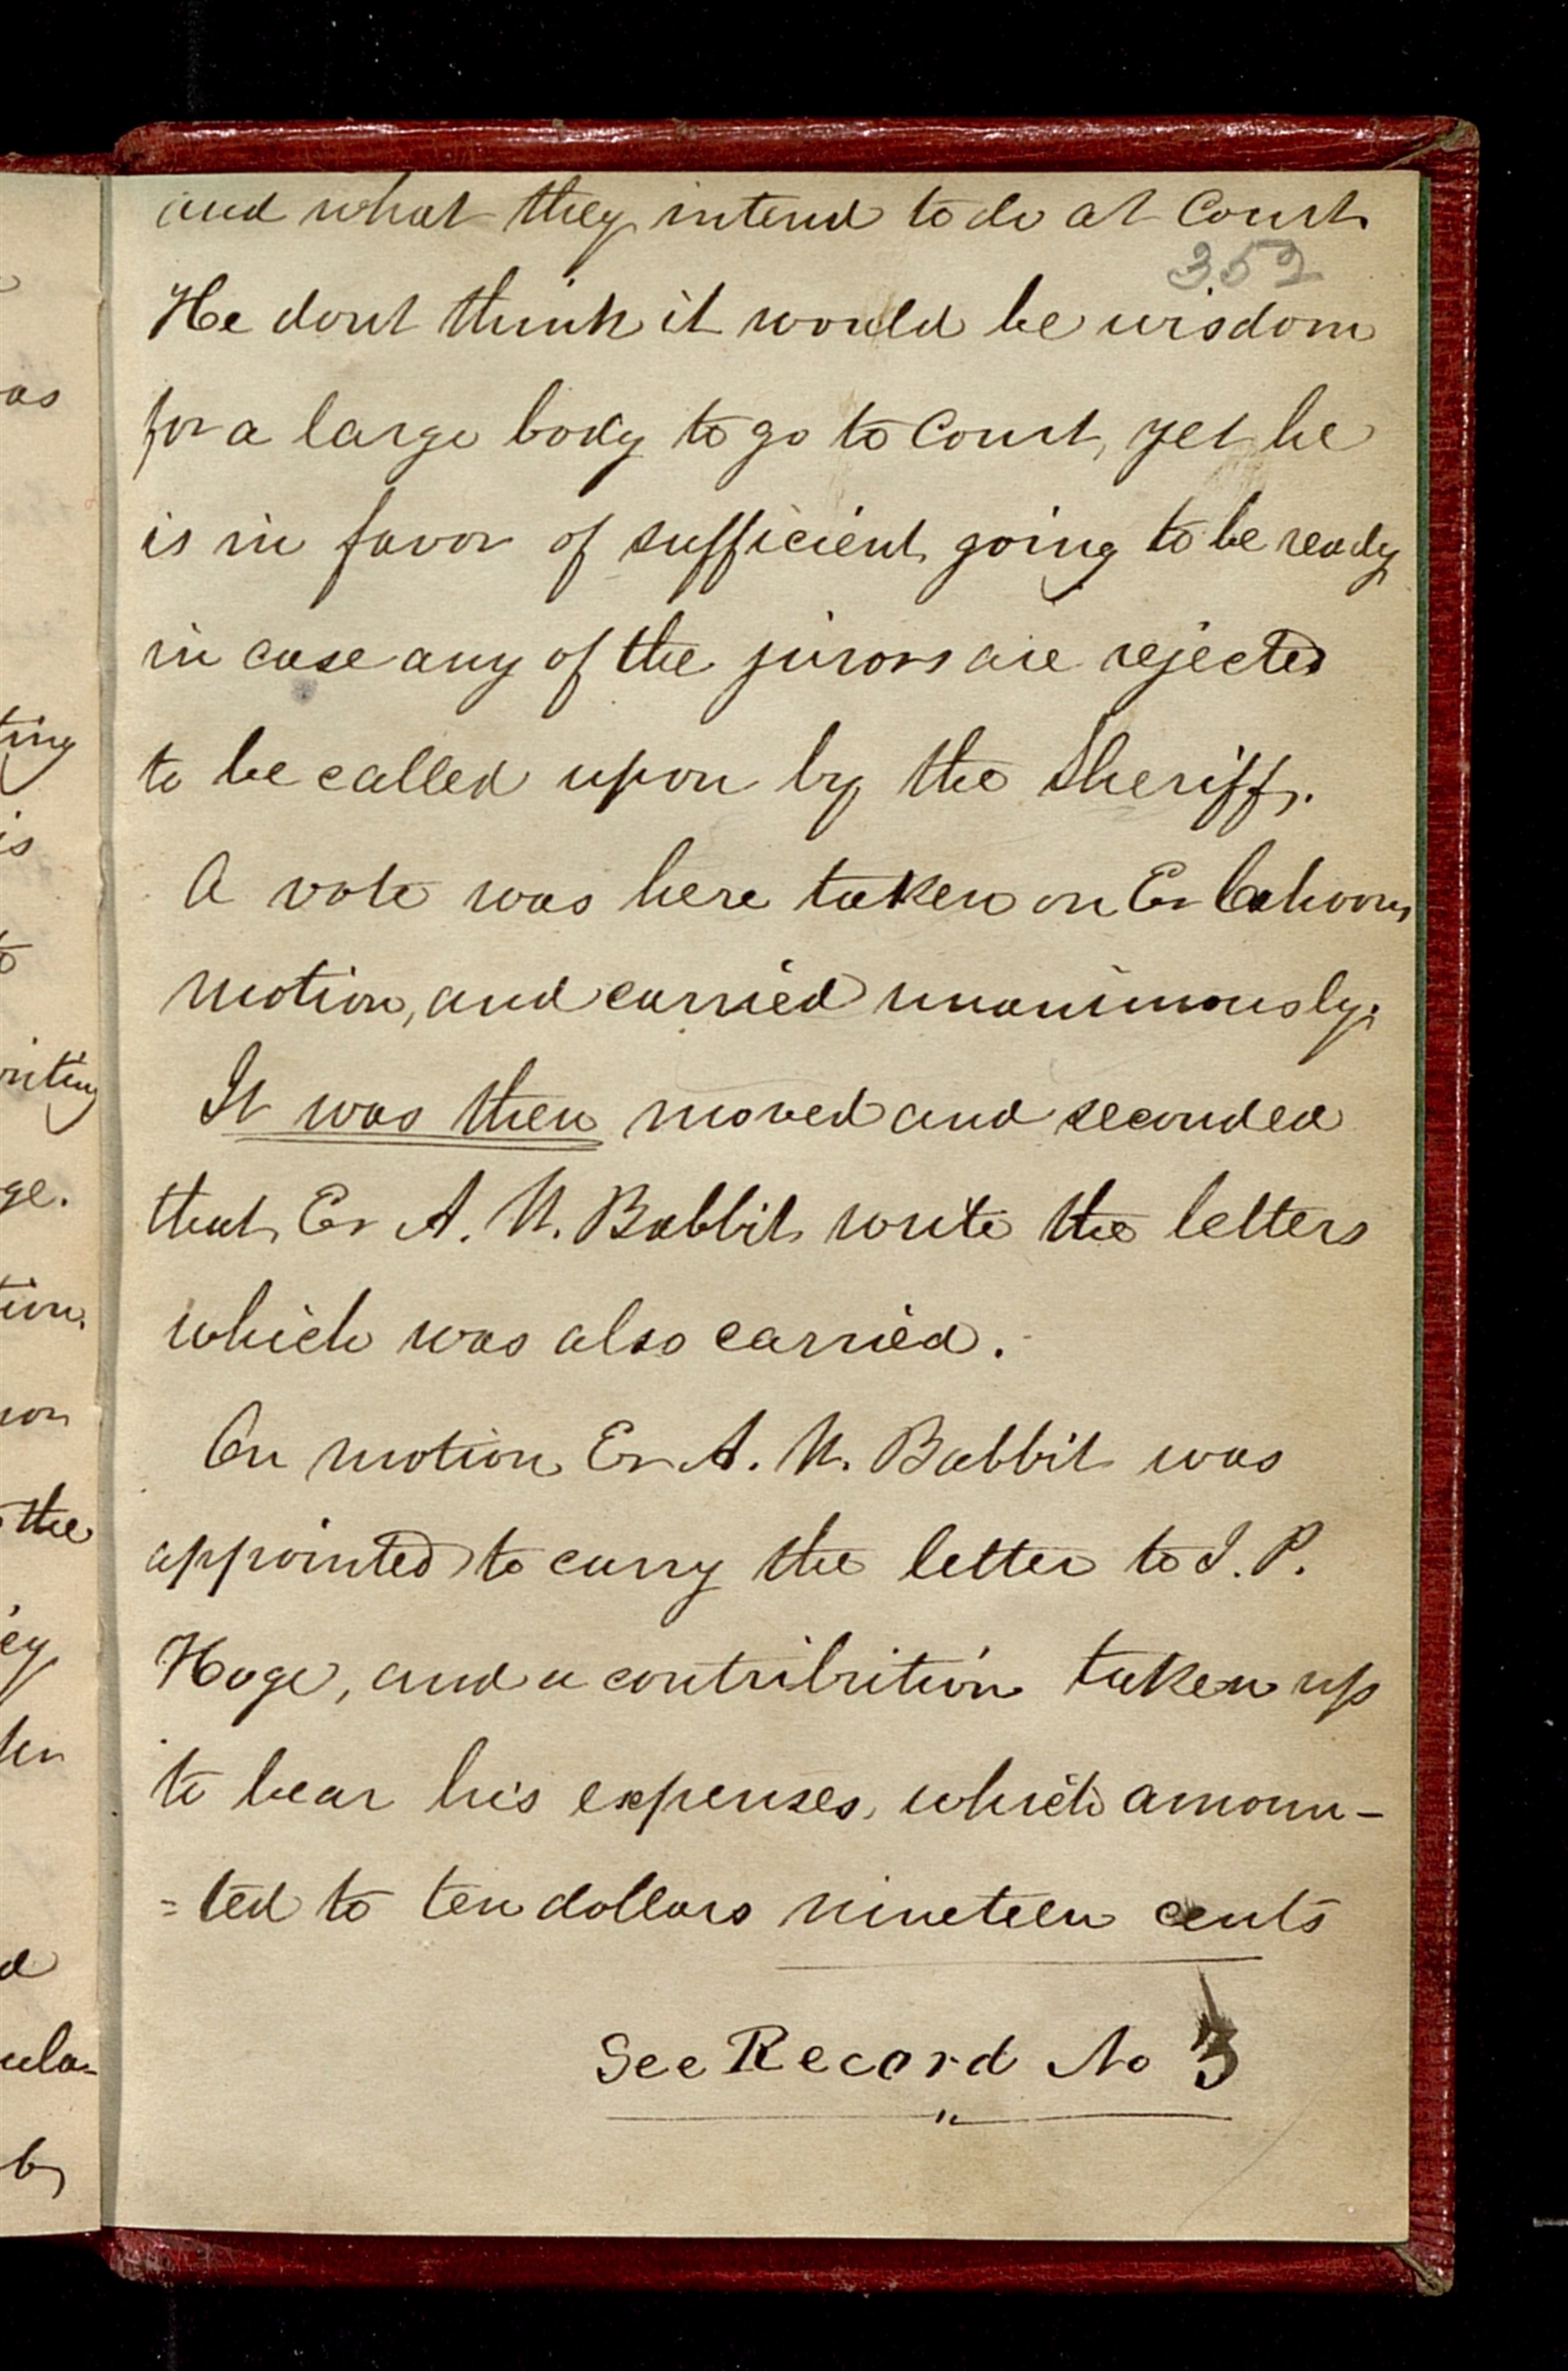 and what they intend to do at Court.
352
He dont think it would be wisdom
for a large body to go to Court, yet he
is in favor of sufficient going to be ready
in case any of the jurors are rejected
to be called upon by the Sheriff.
A vote was here taken on Er Cahoons
motion, and carried unanimously.
It was then moved and seconded
that Er A. W. Babbit write the letters
which was also carried.
On motion Er A. W. Babbit was
appointed to carry the letter to J. P.
Hoge, and a contribution taken up
to bear his expenses, which amoun-
=ted to ten dollars nineteen cents
See Record No 3
as
ting
is
riting
ge.
tion.
the
ey